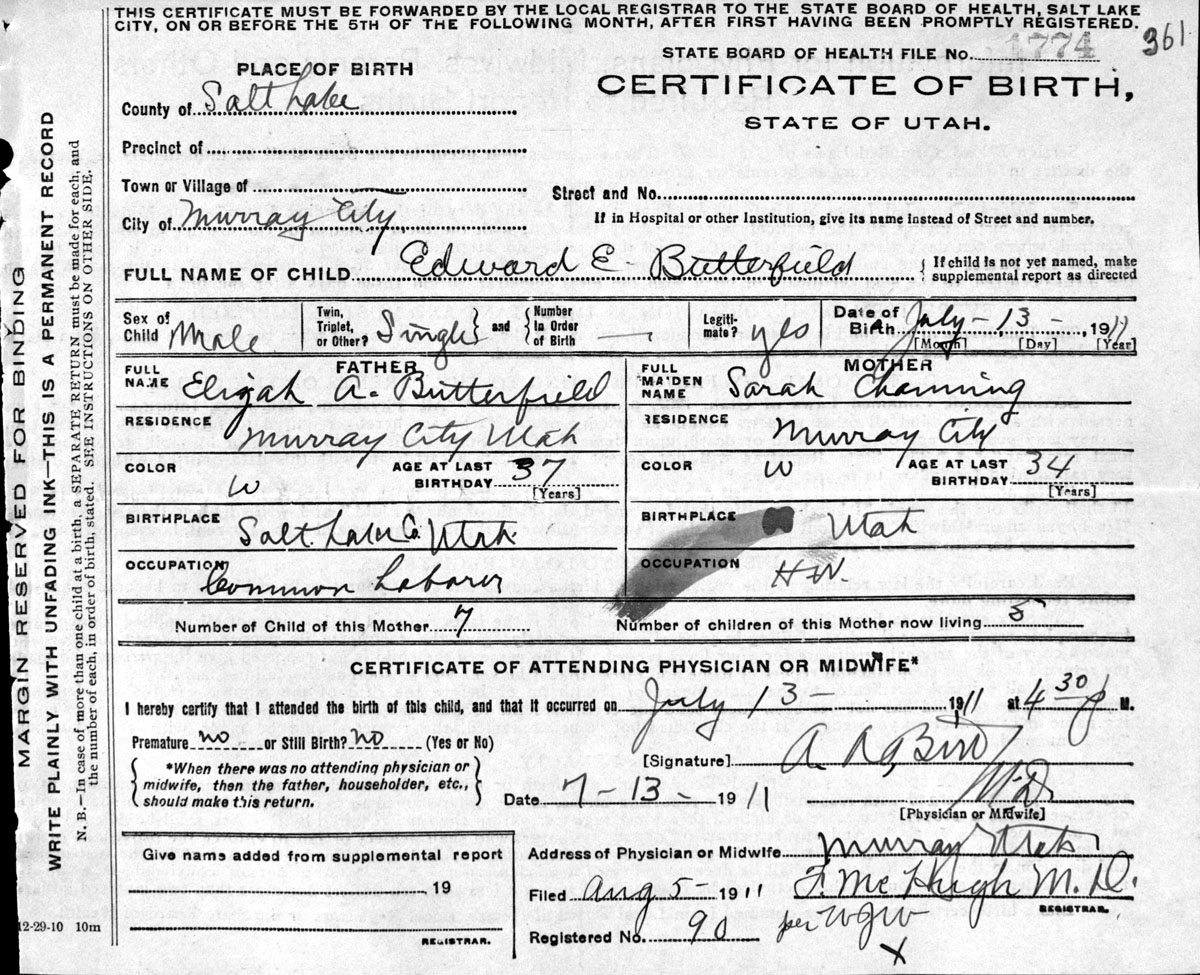 THIS CERTIFICATE MUST BE FORWARDED BY THE LOCAL REGISTRAR TO THE STATE BOARD OF HEALTH, SALT LAKE
CITY, ON OR BEFORE THE 5TH OF THE FOLLOWING MONTH, AFTER FIRST HAVING BEEN PROMPTLY REGISTERED.
361
STATE BOARD OF HEALTH FILE No. 1774
PLACE OF BIRTH
CERTIFICATE OF BIRTH,
County of Salt Lake
STATE OF UTAH.
Precinct of
Town or Village of
Street and No.
City of Murray City
If in Hospital or other Institution, give its name instead of Street and number.
FULL NAME OF CHILD Edward E. Butterfield { If child is not yet named, make
supplemental report as directed
Sex of Child Male
Twin, Triplet, or Other? Single and Number In Order of Birth —
Legiti-mate? yes
Date of Birth July - 13 - , 1911
[Month] [Day] [Year]
FATHER
FULL NAME Elijah A. Butterfield
RESIDENCE Murray City Utah
COLOR W
AGE AT LAST BIRTHDAY 37
[Years]
BIRTHPLACE Salt Lake Co. Utah.
OCCUPATION Common Laborer
MOTHER
FULL MAIDEN NAME Sarah Channing
RESIDENCE Murray City
COLOR W
AGE AT LAST BIRTHDAY 34
[Years]
BIRTHPLACE Utah
OCCUPATION HW
Number of Child of this Mother 7
Number of children of this Mother now living 5
CERTIFICATE OF ATTENDING PHYSICIAN OR MIDWIFE*
I hereby certify that I attended the birth of this child, and that it occurred on July 13 - 1911 at 4 30 P M.
Premature no or Still Birth? no (Yes or No)
[Signature] A. R.
M.D.
[Physician or Midwife]
{ *When there was no attending physician or
midwife, then the father, householder, etc.,
should make this return. }
Date 7 - 13 - 1911
Give name added from supplemental report
19
REGISTRAR.
Address of Physician or Midwife Murray Utah
Filed Aug 5 1911 F. McHugh M.D.
REGISTRAR.
Registered No. 90
per WGW
X
MARGIN RESERVED FOR BINDING
WRITE PLAINLY WITH UNFADING INK—THIS IS A PERMANENT RECORD
N. B.—In case of more than one child at a birth, a SEPARATE RETURN must be made for each, and
the number of each, in order of birth, stated. SEE INSTRUCTIONS ON OTHER SIDE.
12-29-10 10m